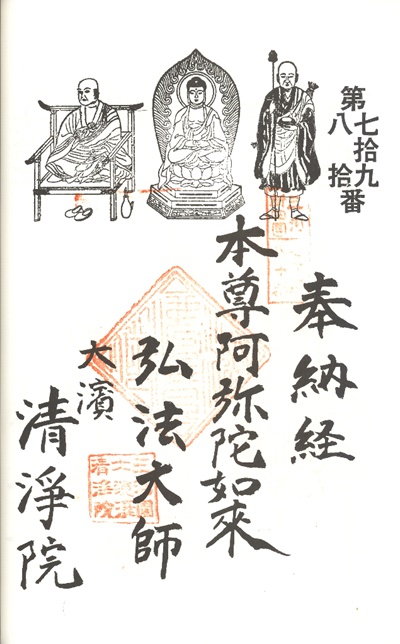 第七拾九
八拾番
奉納経
本尊阿弥陀如來
弘法大師
大濱
清淨院